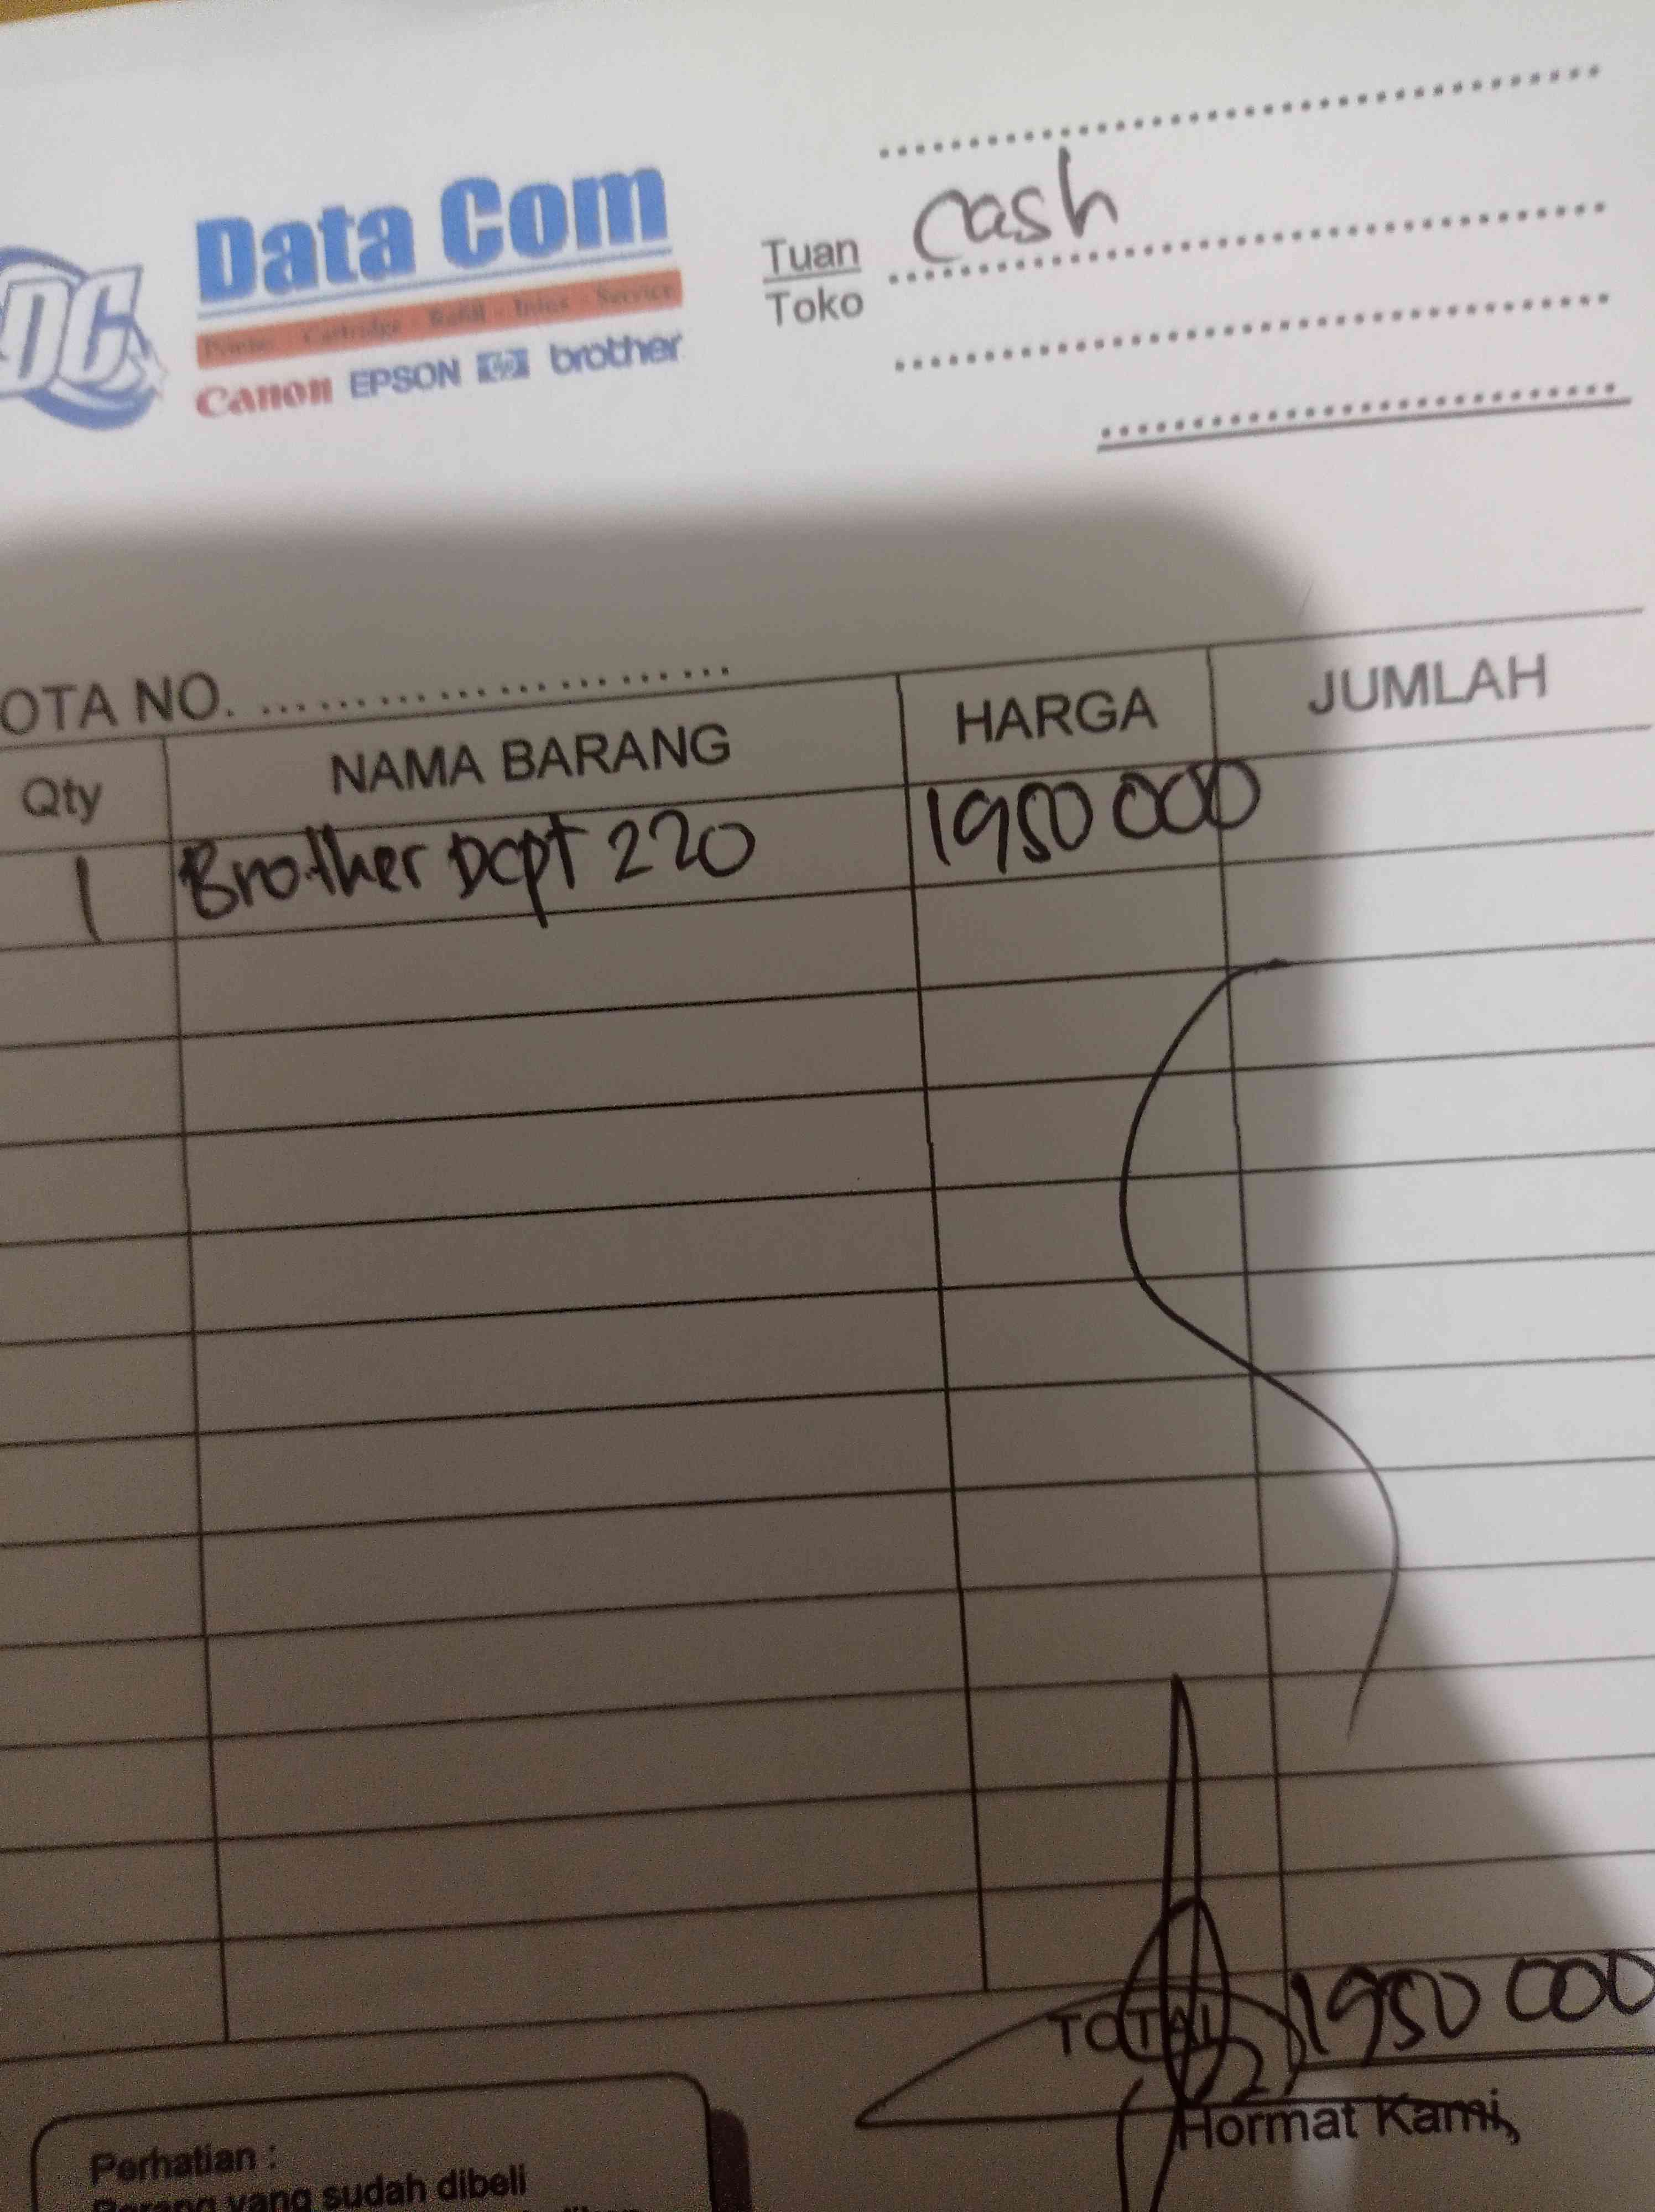 Data Com
Printer - Cartridge - Refill - Infus - Service
Canon EPSON hp brother
DC
Tuan
Toko
Cash
OTA NO. ........................
Qty NAMA BARANG HARGA JUMLAH
1 Brother Dcpt 220 1950 000
TOTAL 1950 000
Hormat Kami,
Perhatian :
Barang yang sudah dibeli